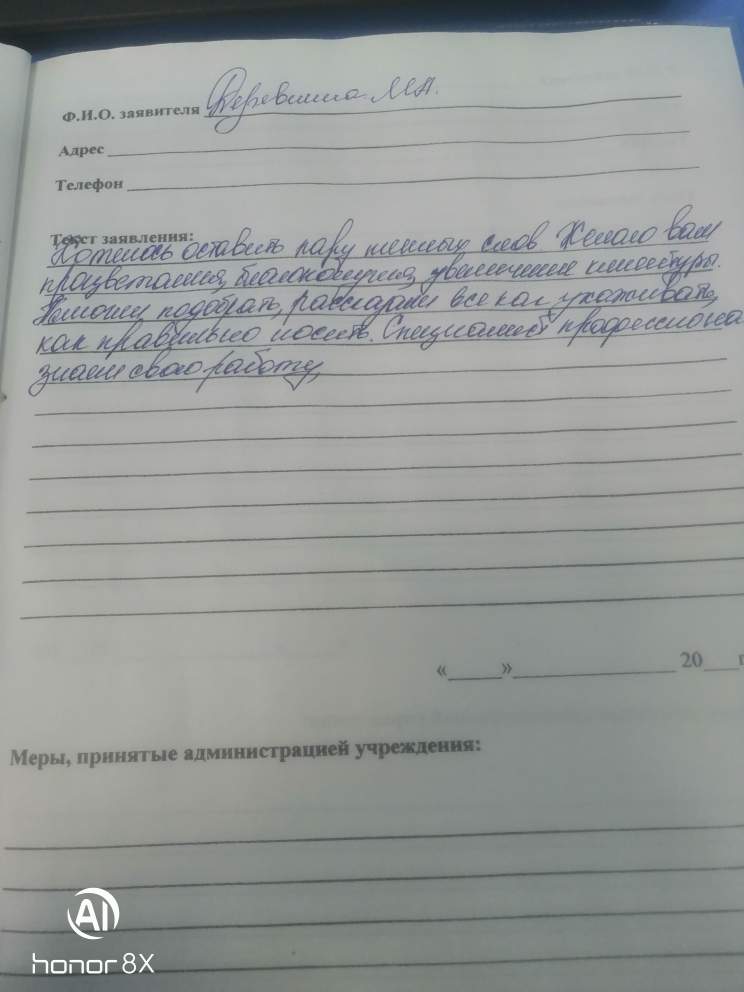 Ф.И.О. заявителя Деревнина М.А.
Адрес
Телефон
Текст заявления:
Хотелось оставить пару теплых слов Желаю вам
процветания, благополучия, увеличение клиентуры.
Помогли подобрать, рассказали все как ухаживать,
как правильно носить. Специалист профессиона
знает свою работу,
« » 20 г
Меры, принятые администрацией учреждения:
AI
honor 8X